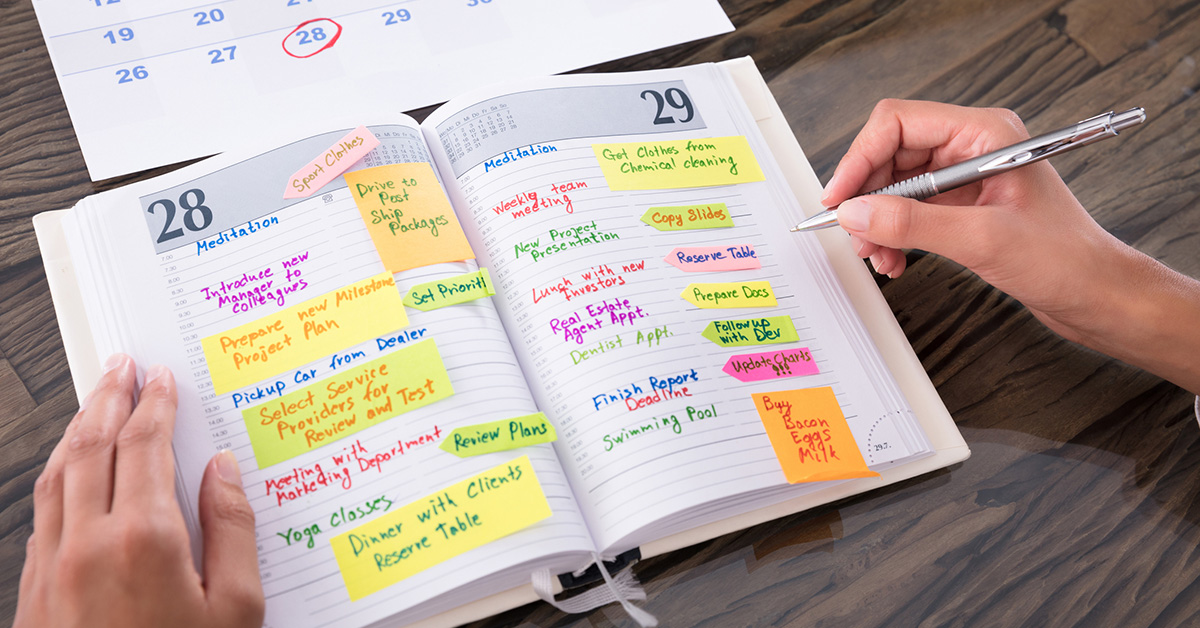 19
20
26
27
28
29
28
Sport Clothes
Drive to
Post
Ship
Packages
Meditation
Introduce new
Manager to
colleagues
Set Priorit
Prepare new Milestone
Project Plan
Pickup Car from Dealer
Select Service
Providers for
Review and Test
Meeting with
Marketing Department
Review Plans
Yoga Classes
Dinner with Clients
Reserve Table
29
Meditation
Get Clothes from
Chemical cleaning
Weekly team
meeting
Copy Slides
New Project
Presentation
Reserve Table
Lunch with new
Investors
Prepare Docs
Real Estate
Agent Appt.
Followup
with Dev
Dentist Appt.
Update Charts
!!!
Finish Report
Deadline
Swimming Pool
Buy
Bacon
Eggs
Milk
29.7.